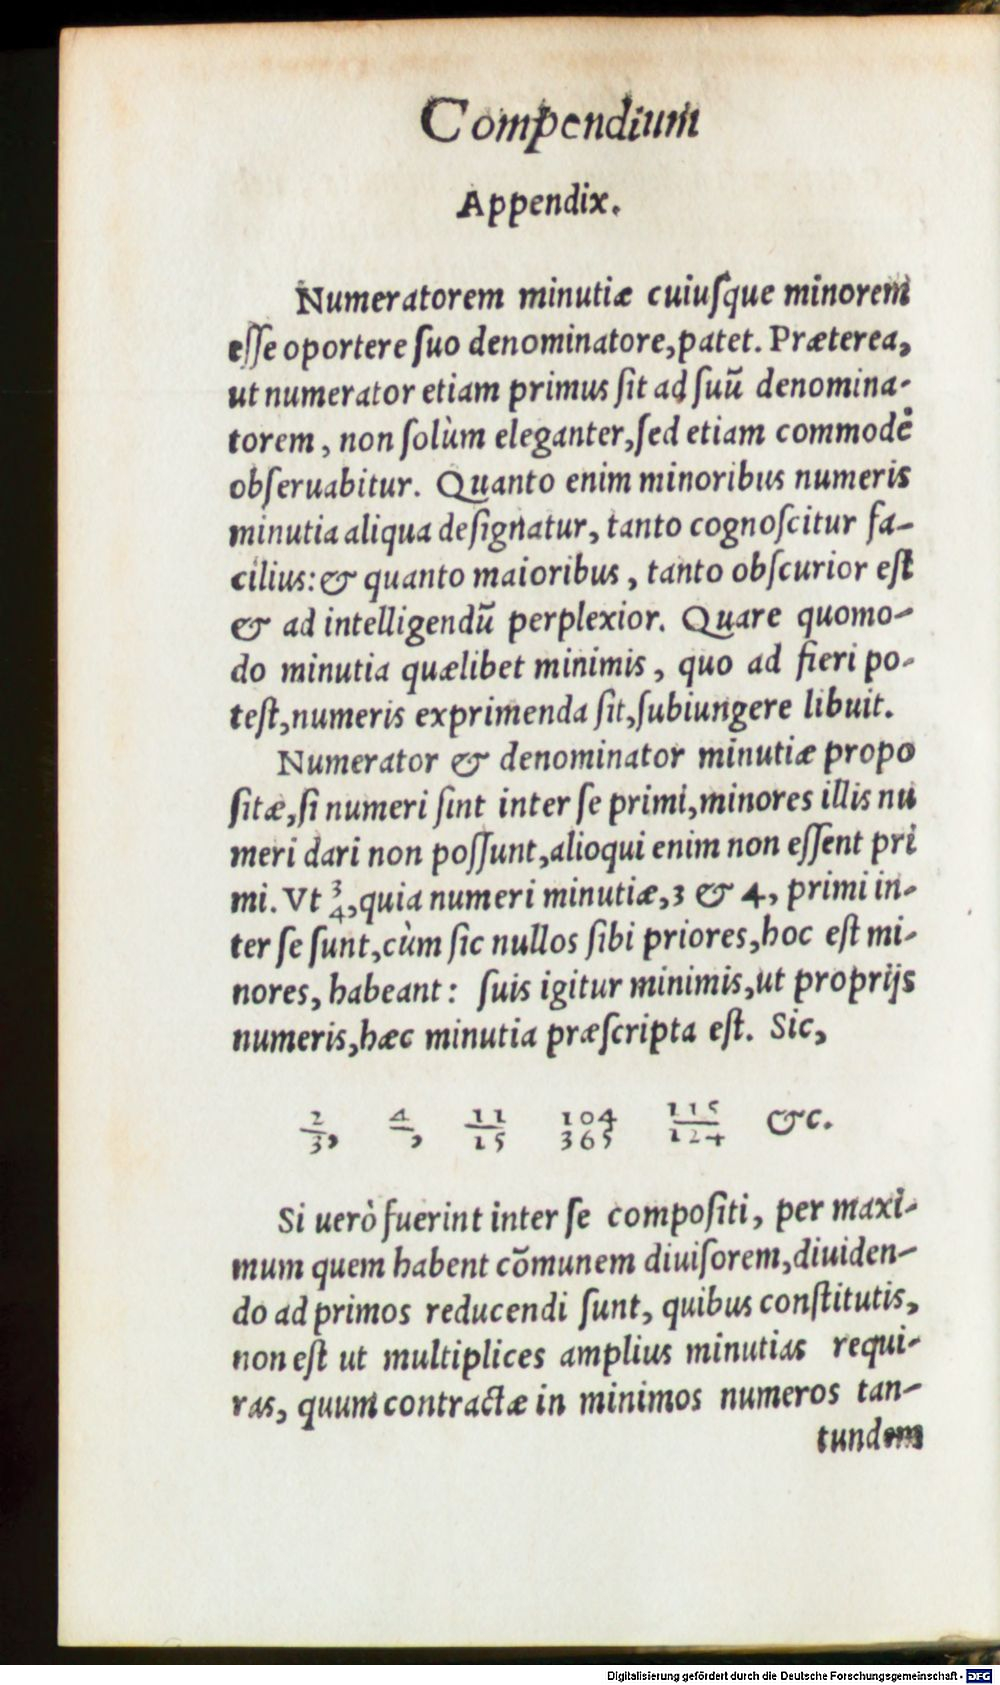 Compendium
Appendix.
Numeratorem minutiæ cuiuſque minorem
eſſe oportere ſuo denominatore, patet. Præterea,
ut numerator etiam primus ſit ad ſuū denomina-
torem, non ſolùm eleganter, ſed etiam commodè
obſeruabitur. Quanto enim minoribus numeris
minutia aliqua deſignatur, tanto cognoſcitur fa-
cilius: & quanto maioribus, tanto obſcurior eſt
& ad intelligendū perplexior. Quare quomo-
do minutia quælibet minimis, quo ad fieri po-
teſt, numeris exprimenda ſit, ſubiungere libuit.
Numerator & denominator minutiæ propo
ſitæ, ſi numeri ſint inter ſe primi, minores illis nu
meri dari non poſſunt, alioqui enim non eſſent pri
mi. Vt 3/4, quia numeri minutiæ, 3 & 4, primi in-
ter ſe ſunt, cùm ſic nullos ſibi priores, hoc eſt mi-
nores, habeant: ſuis igitur minimis, ut proprijs
numeris, hæc minutia præſcripta eſt. Sic,
2/3, 4/ , 11/15 104/365 115/124 &c.
Si uerò fuerint inter ſe compoſiti, per maxi-
mum quem habent cōmunem diuiſorem, diuiden-
do ad primos reducendi ſunt, quibus conſtitutis,
non eſt ut multiplices amplius minutias requi-
ras, quum contractæ in minimos numeros tan-
tundem
Digitalisierung gefördert durch die Deutsche Forschungsgemeinschaft - DFG